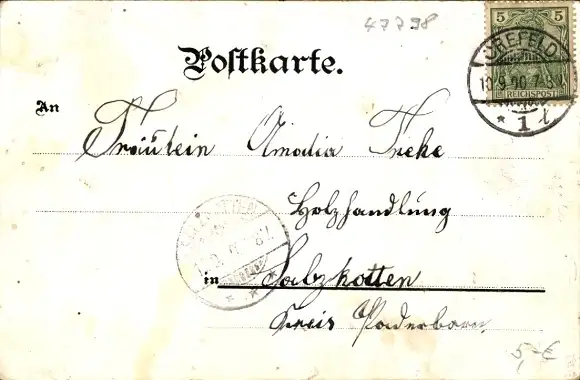 47798
5 5
REICHSPOST
CREFELD
1
Postkarte.
An
Fräulein Amalia Freke
Holzhandlung
in Salzkotten
Kreis Paderborn
5,-€